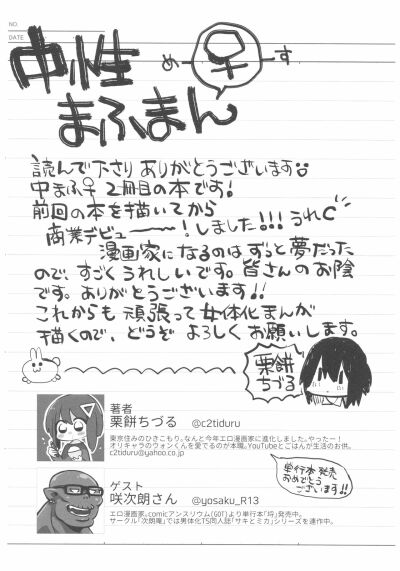 NO.
DATE
中性
め♀す
まふまん
読んで下さりありがとうございます
中まふ♀2冊目の本です!
前回の本を描いてから
商業デビュー〜〜!しました!!!うれC
漫画家になるのはずっと夢だった
ので、すごくうれしいです。皆さんのお陰
です。ありがとうございます!!
これからも頑張って女体化まんが
描くので、どうぞよろしくお願いします。
栗餅
ちづる
著者
栗餅ちづる @c2tiduru
東京住みのひきこもり。なんと今年エロ漫画家に進化しました。やったー!
オリキャラのウォンくんを愛でるのが本職。YouTubeとごはんが生活のお供。
c2tiduru@yahoo.co.jp
単行本発売
おめでとう
ございます!!
ゲスト
咲次朗さん @yosaku_R13
エロ漫画家。comicアンスリウム(GOT)より単行本「埒」発売中。
サークル「次朗庵」では男体化TS同人誌「サキとミカ」シリーズを連作中。